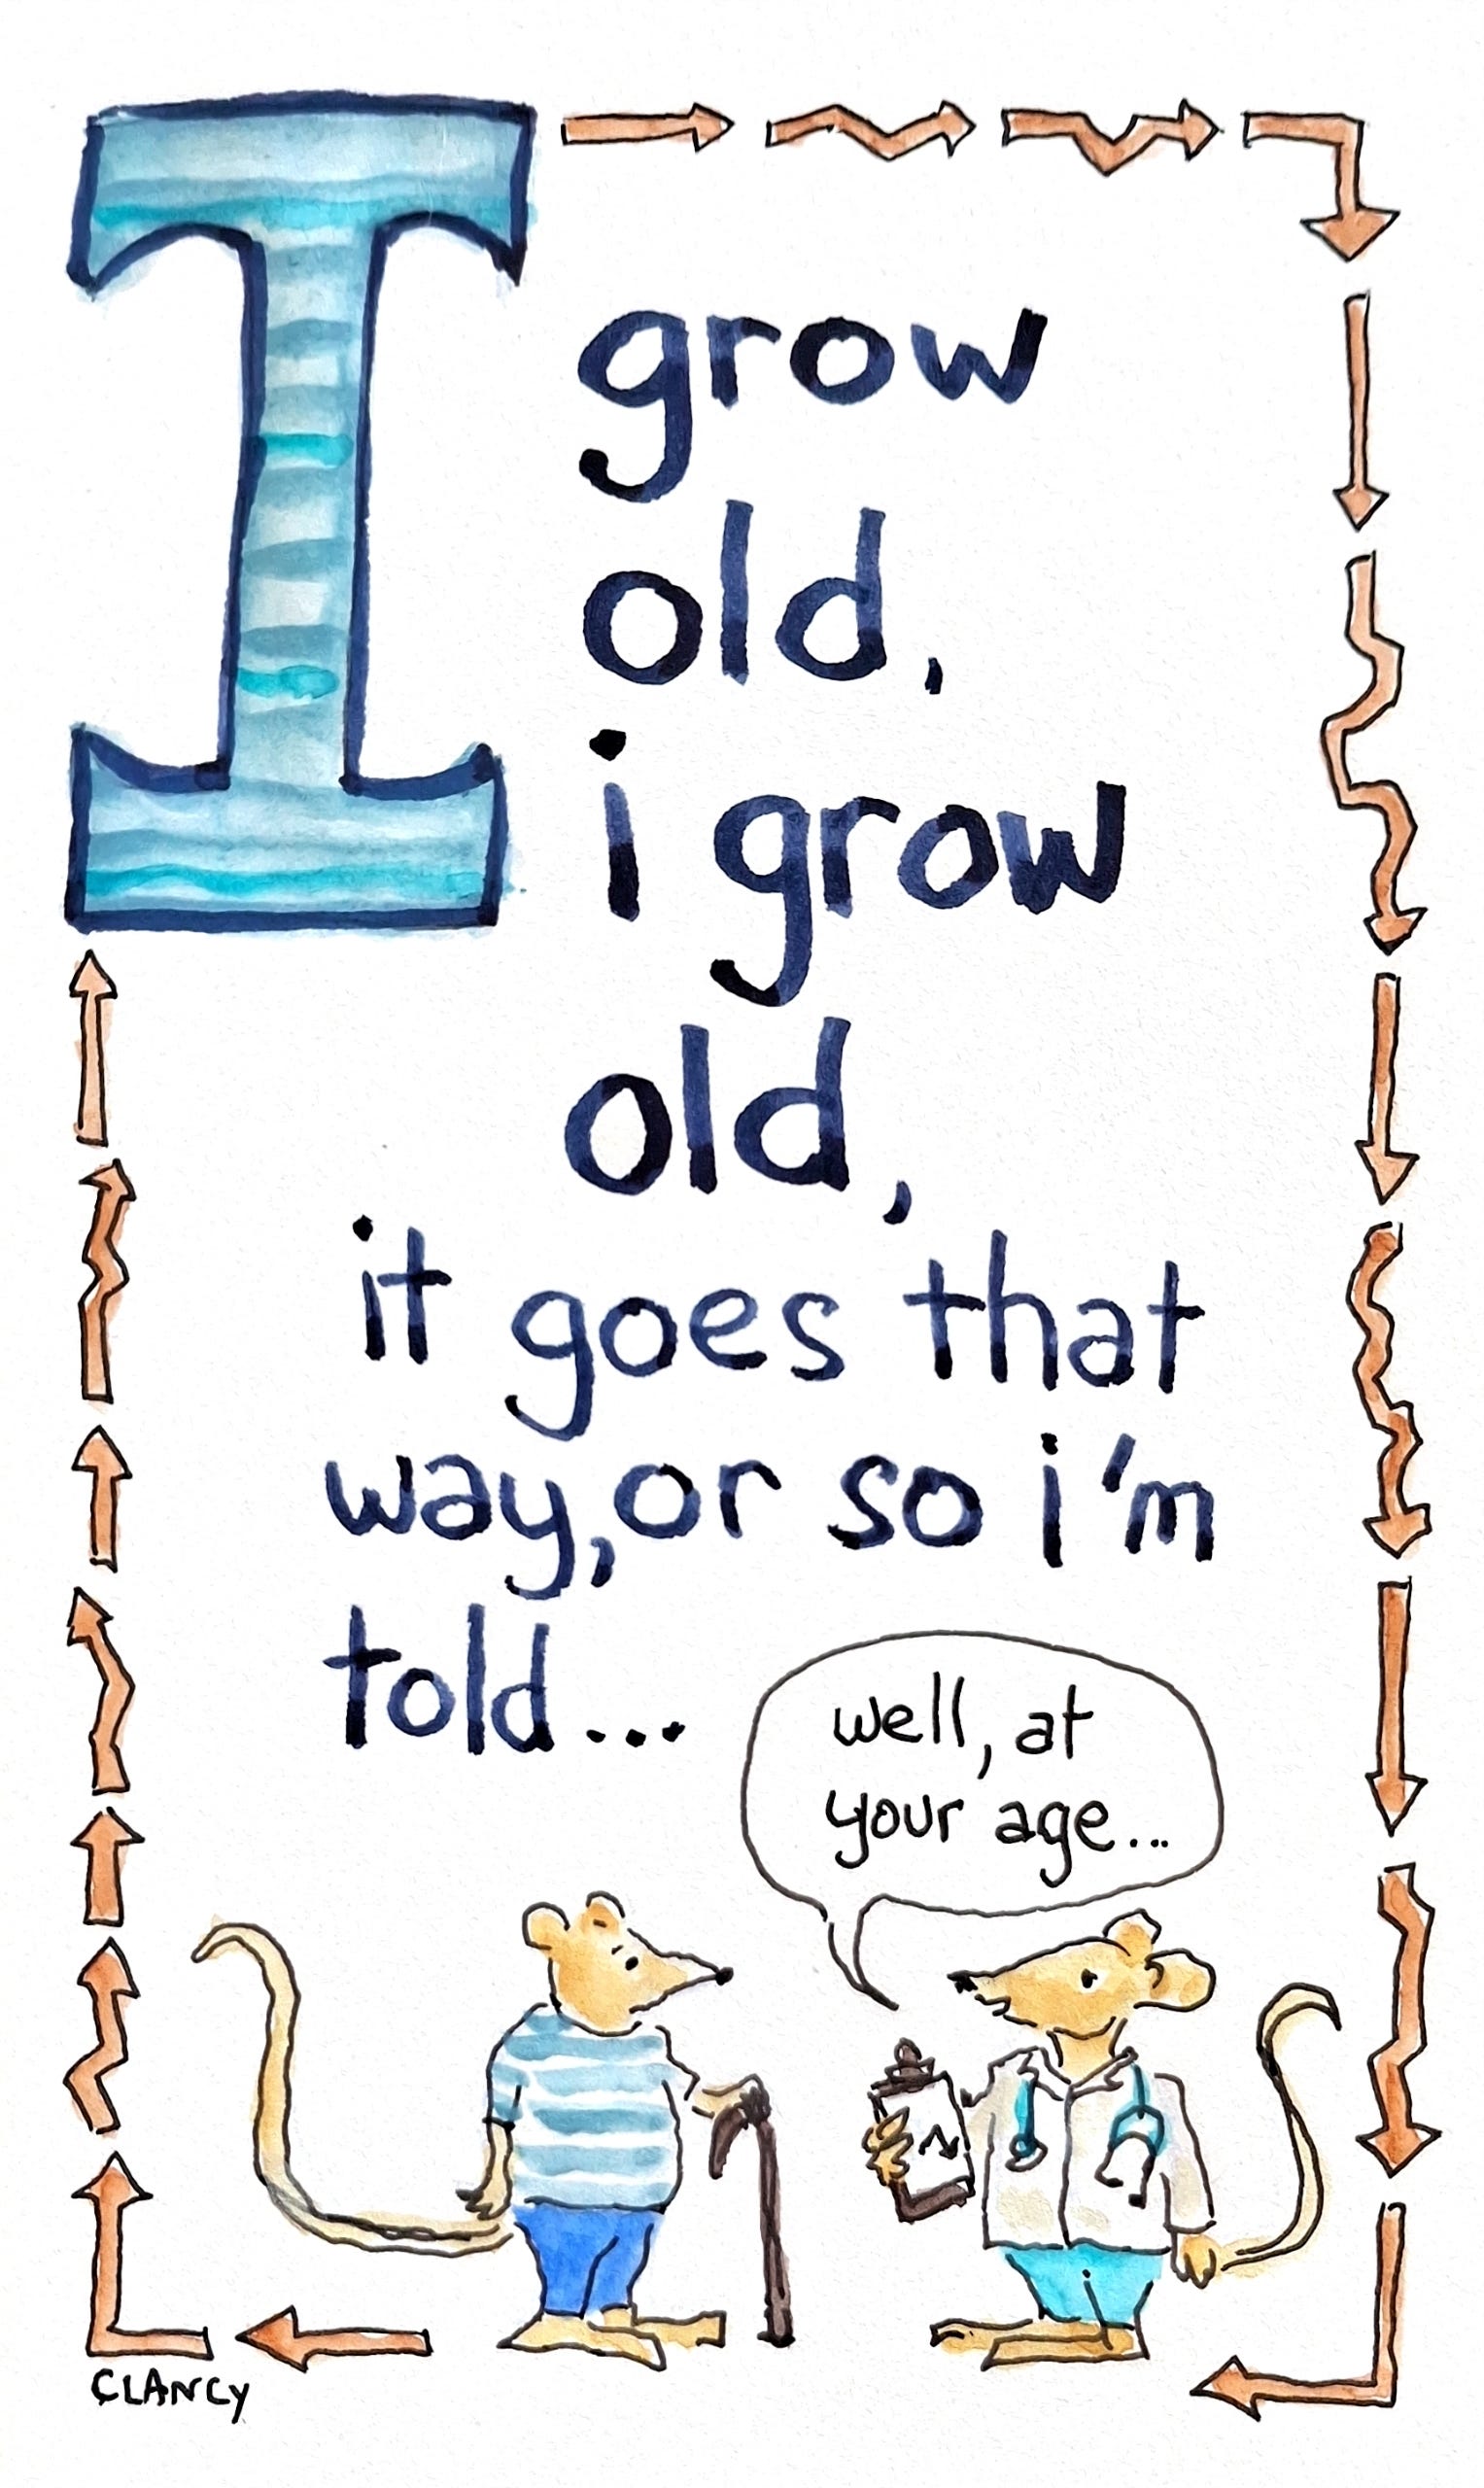 I grow
old,
i grow
old,
it goes that
way, or so i'm
told...
well, at
your age...
CLANCY